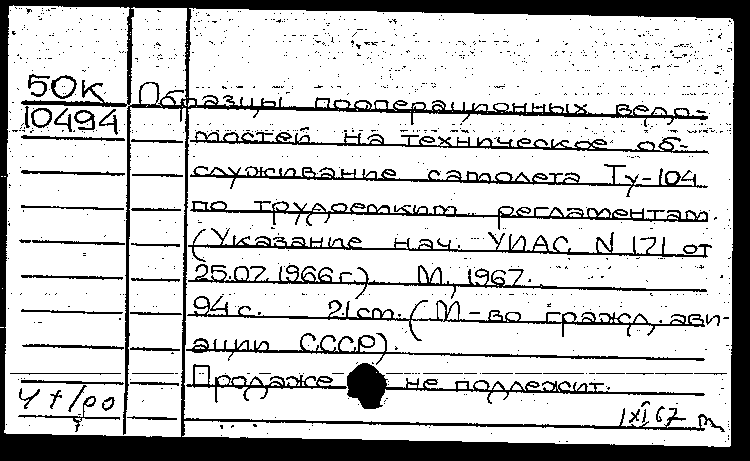 50К
10494
Образцы пооперационных ведо-
мостей на техническое об-
служивание самолета Ту-104
по трудоемким регламентам.
(Указание нач. УИАС N 171 от
25.07.1966 г.) М., 1967.
94 с. 21 см. (М-во гражд. ави-
ации СССР).
Продаже не подлежит.